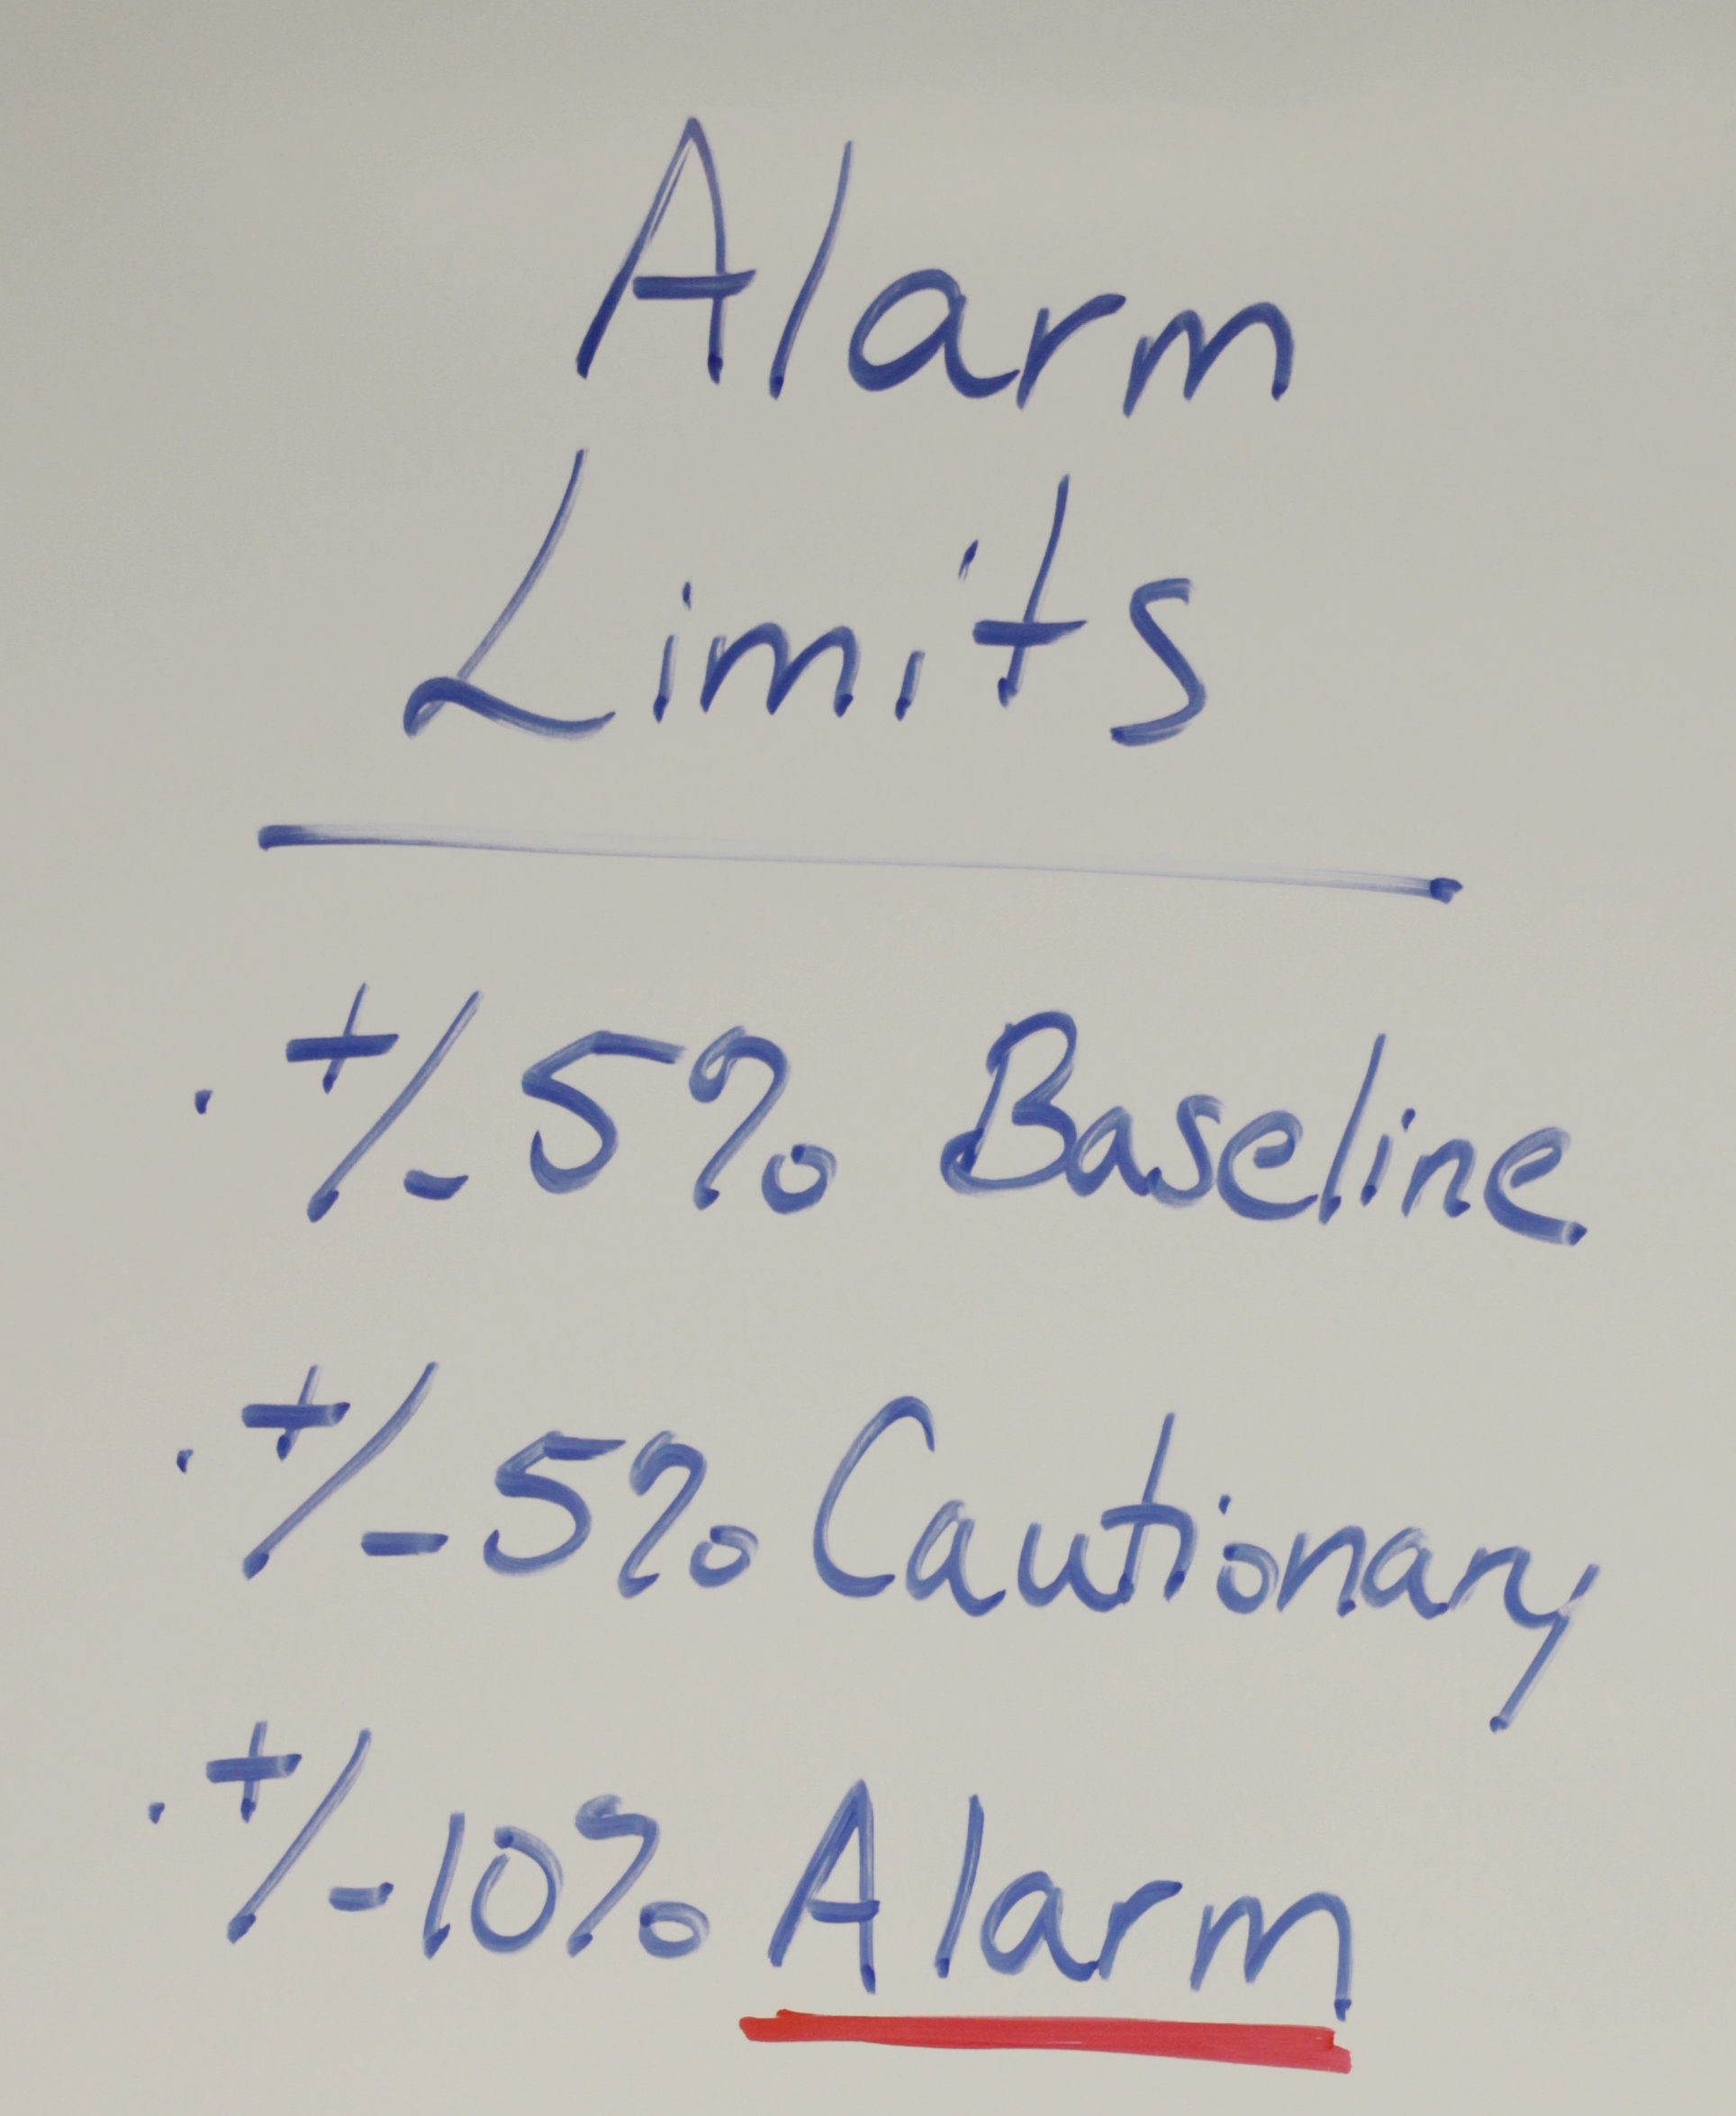 Alarm
Limits
· +/- 5% Baseline
· +/- 5% Cautionary
· +/- 10% Alarm